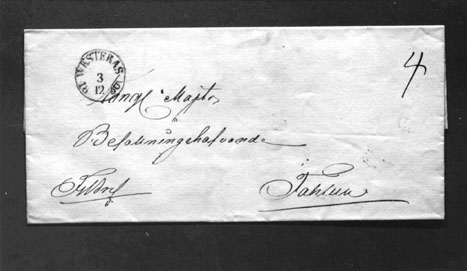 WESTERÅS
3
12
4
Kongl Majts
Befallningshafvande
Fahlun